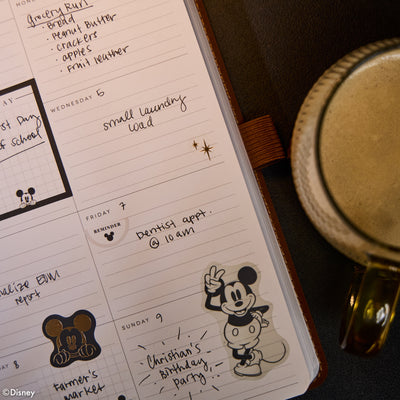 Grocery Run
· Bread
· Peanut Butter
· crackers
· apples
· fruit leather
WEDNESDAY 5
small laundry
load
AY
st Day
of school
FRIDAY 7
REMINDER
Dentist appt.
@ 10 am
EOM
report
SUNDAY 9
Christian's
birthday
party
8
Farmer's
market
©Disney